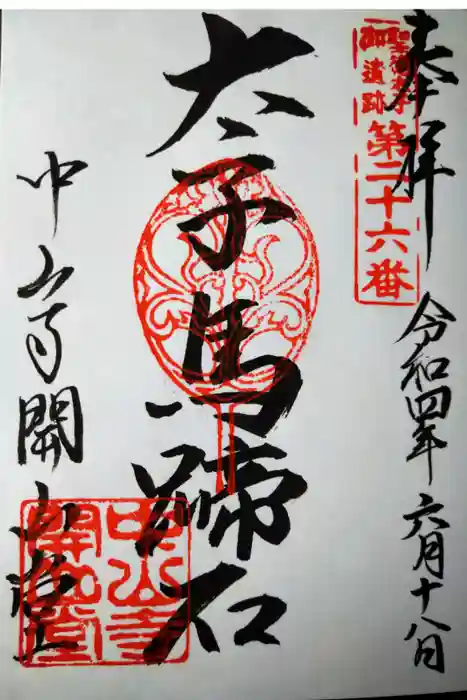 奉拝
聖徳太子
御遺跡
第二十六番
令和四年六月十八日
太子馬蹄石
中山寺開山堂
中山寺
開山堂